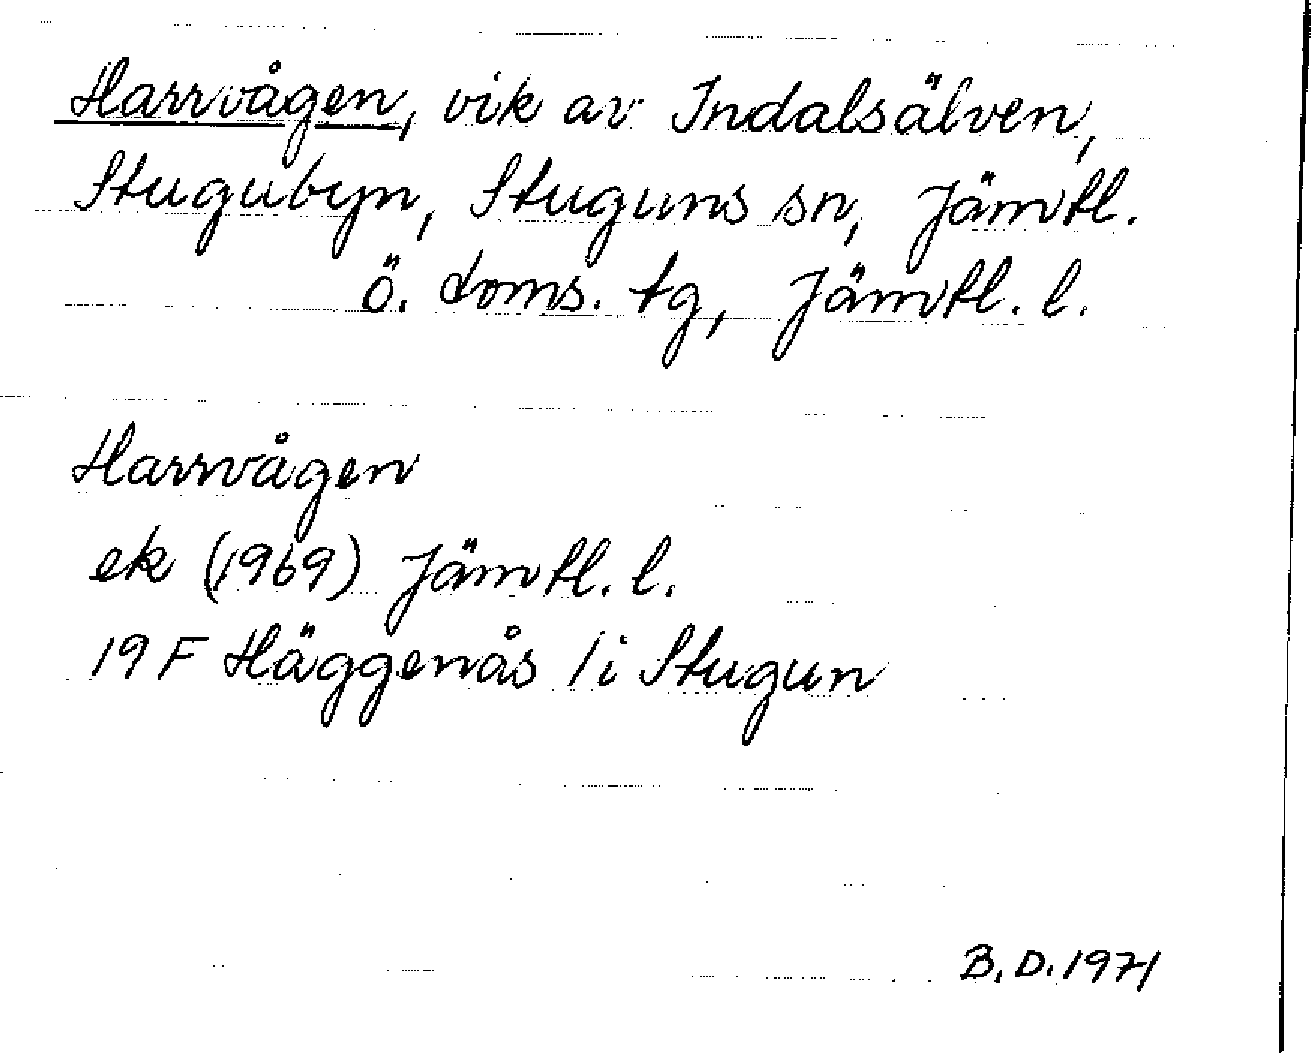 Harrvågen, vik av Indalsälven,
Stugubyn, Stuguns sn, Jämtl.
ö. doms. tg, Jämtl. l.
Harrvågen
ek (1969) Jämtl. l.
19 F Häggenås /i Stugun
B.D. 1971